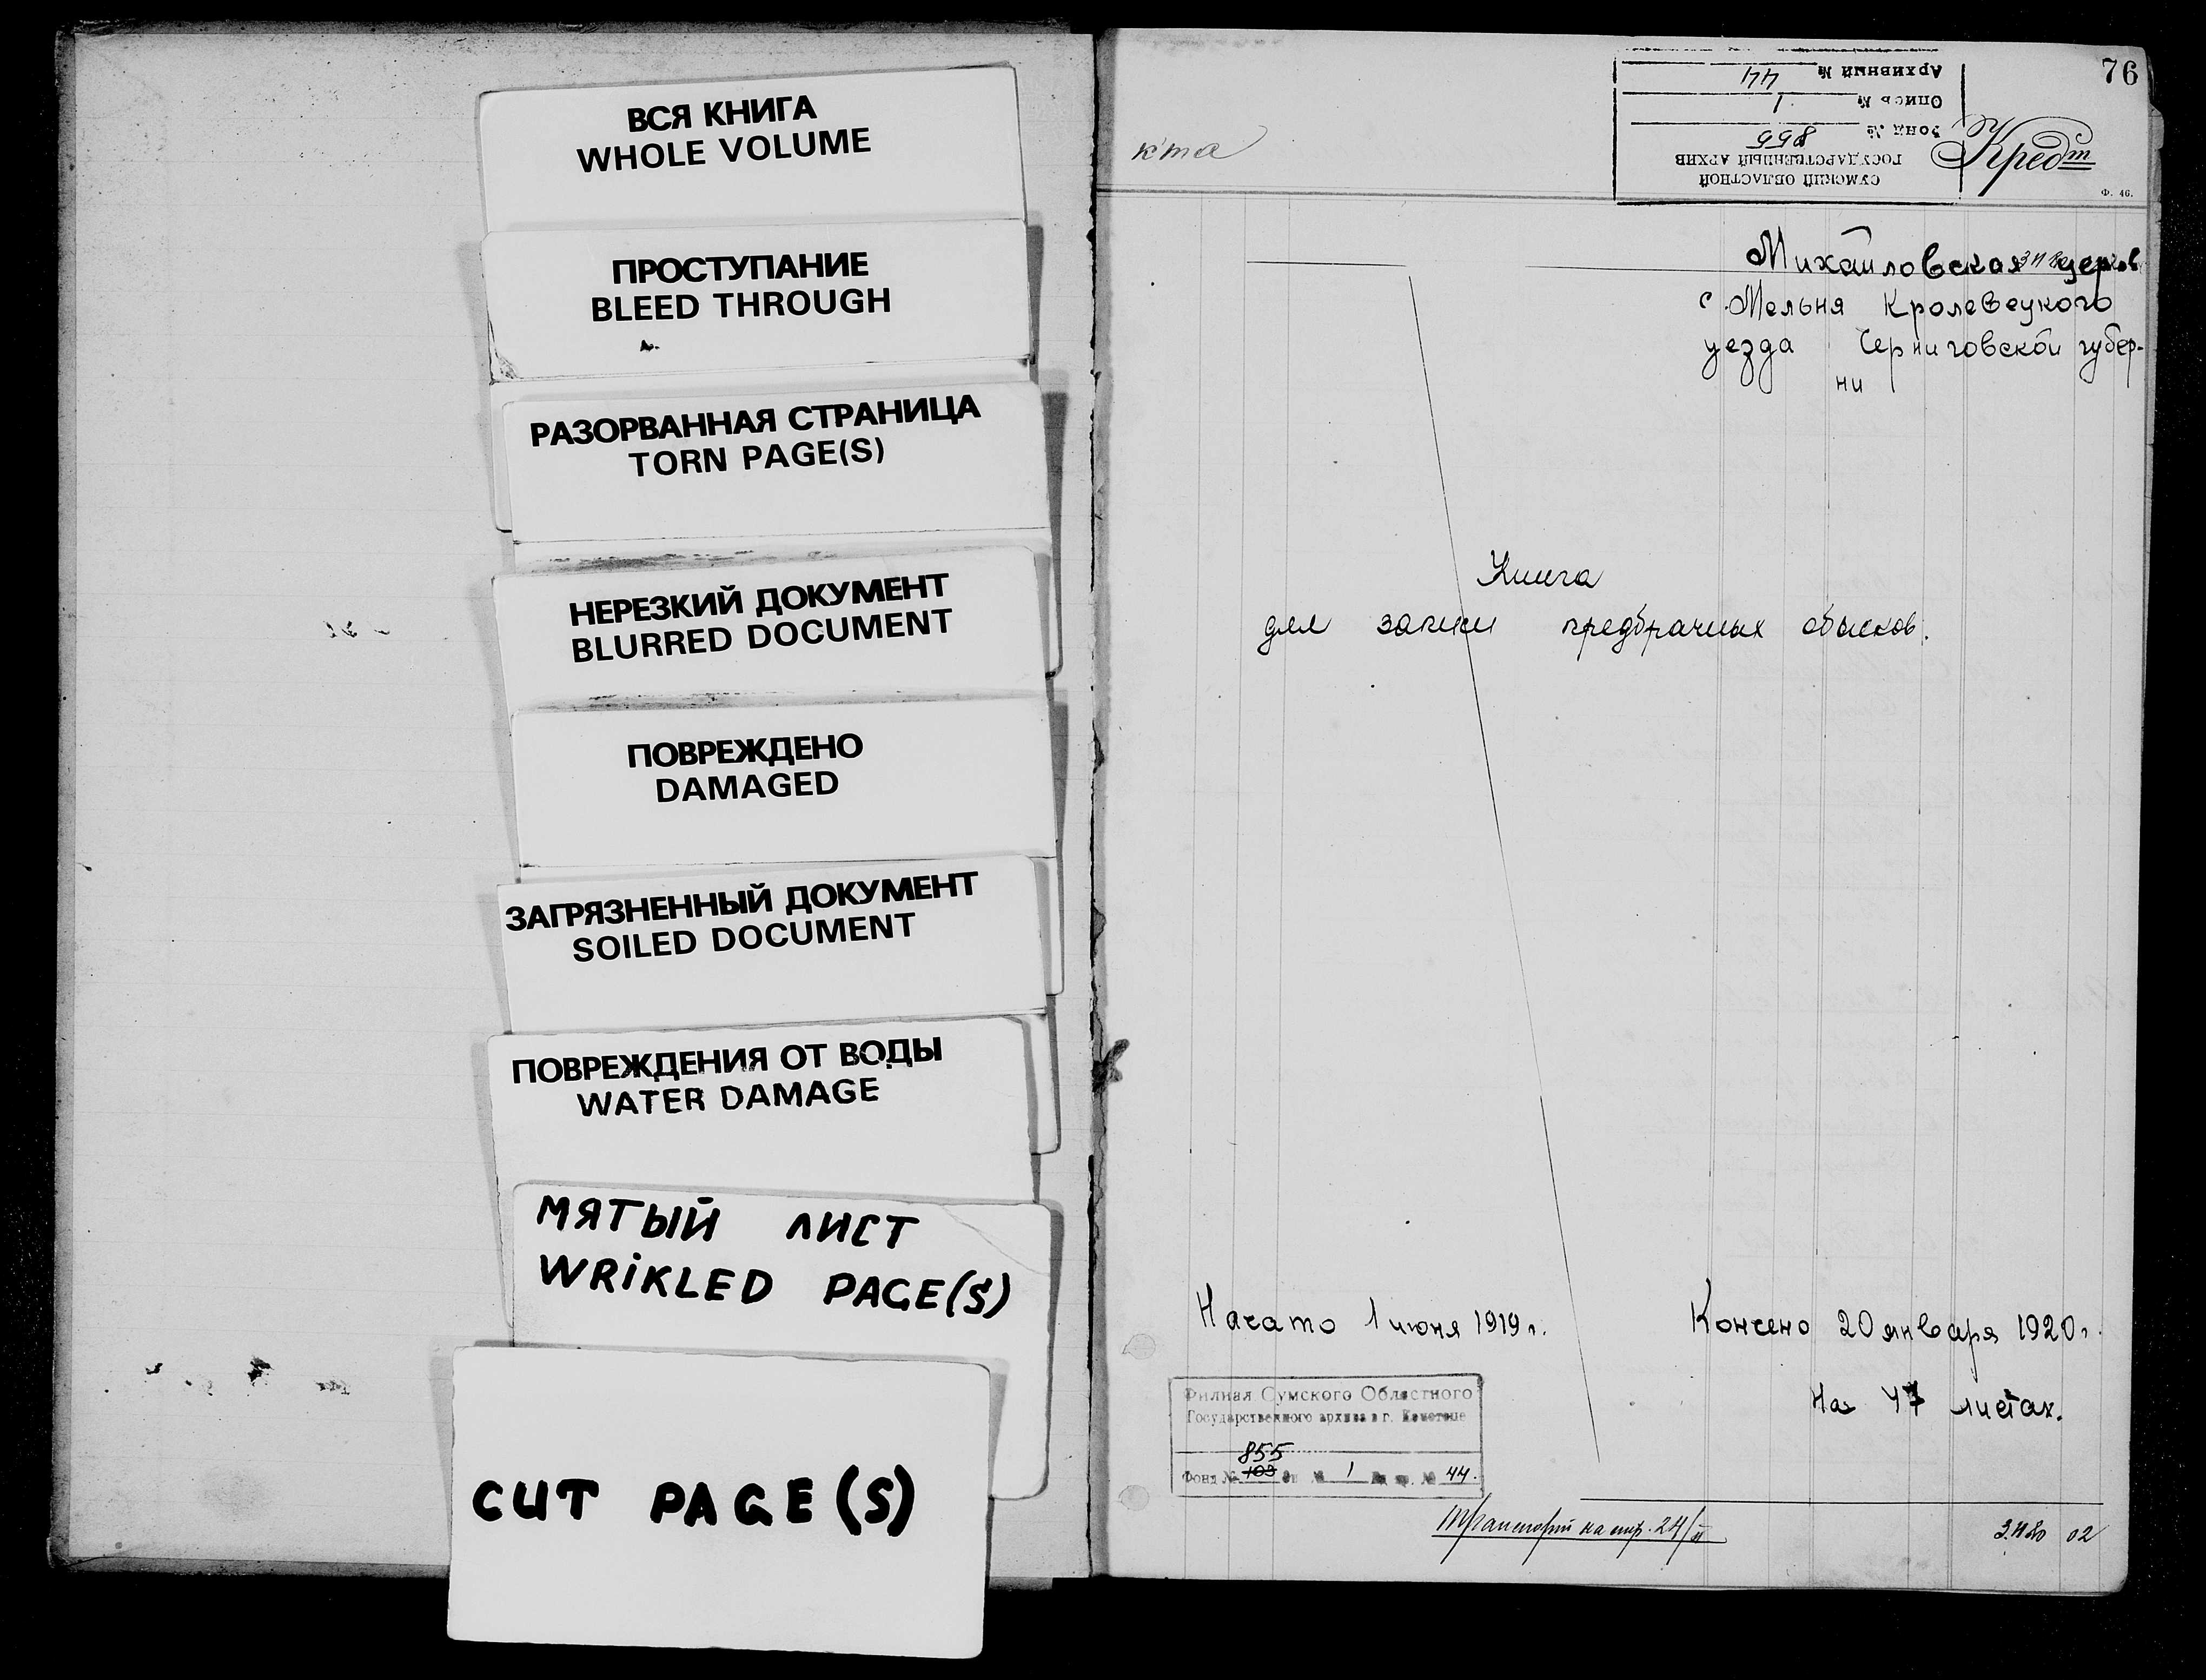 ВСЯ КНИГА
WHOLE VOLUME
ПРОСТУПАНИЕ
BLEED THROUGH
РАЗОРВАННАЯ СТРАНИЦА
TORN PAGE(S)
НЕРЕЗКИЙ ДОКУМЕНТ
BLURRED DOCUMENT
ПОВРЕЖДЕНО
DAMAGED
ЗАГРЯЗНЕННЫЙ ДОКУМЕНТ
SOILED DOCUMENT
ПОВРЕЖДЕНИЯ ОТ ВОДЫ
WATER DAMAGE
МЯТЫЙ ЛИСТ
WRIKLED PAGE(S)
CUT PAGE(S)
76
кта
Кредт
Ф. 46.
СУМСКИЙ ОБЛАСТНОЙ
ГОСУДАРСТВЕННЫЙ АРХИВ
Фонд № 855
Опись № 1
Архивный № 44
Михайловская церков
с. Мельня Кролевецкого
уезда Черниговской губер-
ни
Книга
для записи предбрачных обысков.
Начато 1 июня 1919 г.
Кончено 20 января 1920 г.
На 47 листах.
Филиал Сумского Областного
Государственного архива в г. Конотопе
855
Фонд № 103 Оп № 1 Ед. хр. № 44.
Транспорт на стр. 24/
02